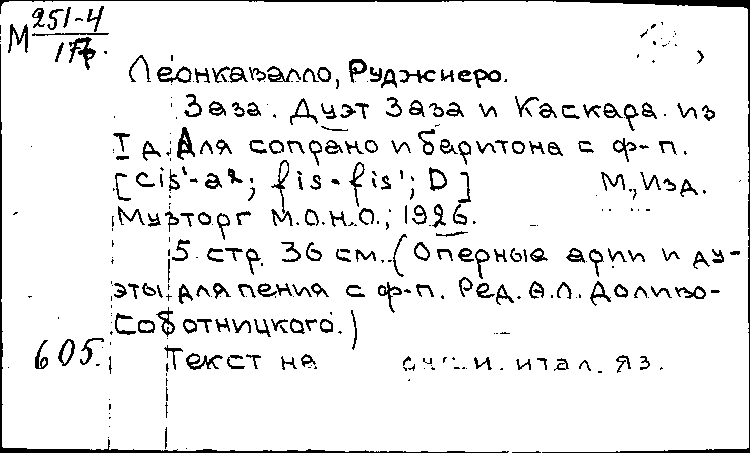 М 251-4
17р.
Леонкавалло, Руджиеро.
Заза. Дуэт Заза и Каскара из
I д. Для сопрано и баритона с ф-п.
[cis'-a²; fis-fis'; D] М., Изд.
Музторг М.О.Н.О., 1926.
5 стр. 36 см. (Оперные арии и ду-
эты для пения с ф-п. Ред. А.Л. Доливо-
Соботницкого.)
605. Текст на и итал. яз.